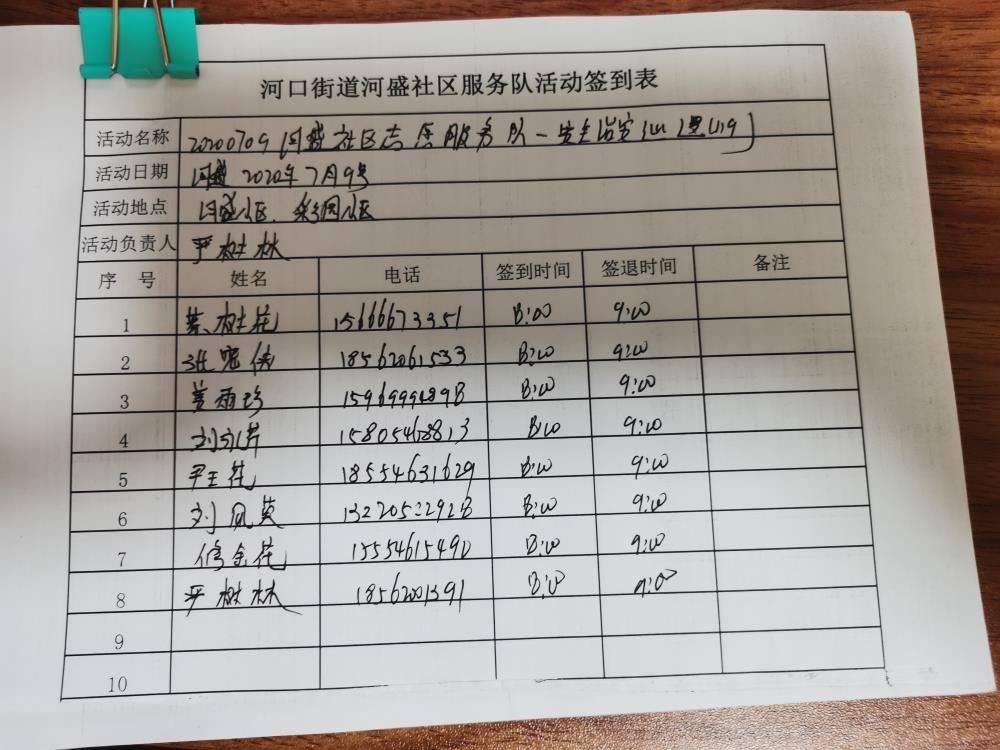 河口街道河盛社区服务队活动签到表
活动名称 20200709河盛社区志愿服务队一安全治安
活动日期 河盛 2020年7月9号
活动地点 河盛小区、彩园小区
活动负责人 严树林
序 号 姓名 电话 签到时间 签退时间 备注
1 树花 15666673351 8:00 9:00
2 张宠侠 18562061533 8:00 9:00
3 姜雨珍 15969994898 8:00 9:00
4 刘 15805468813 8:00 9:00
5 尹王花 18554631629 8:00 9:00
6 刘凤英 13220522928 8:00 9:00
7 信金花 15554615490 8:00 9:00
8 严树林 18562001391 8:00 9:00
9
10